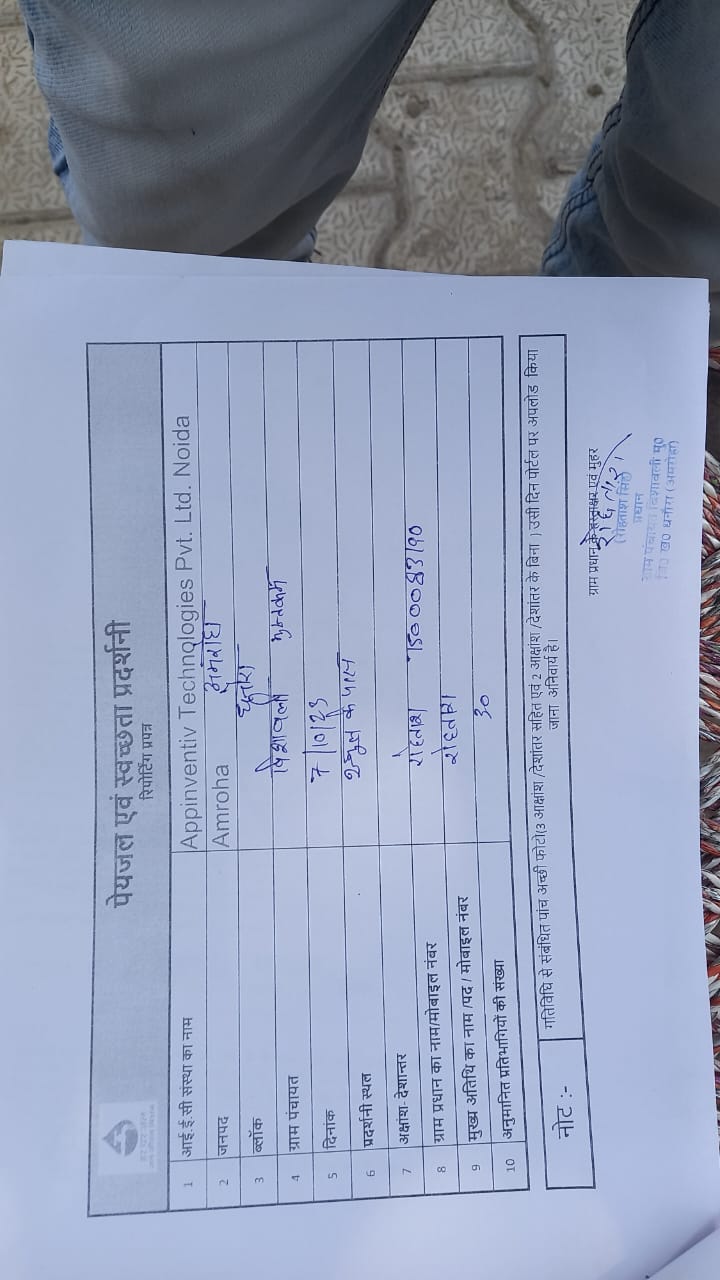 पेयजल एवं स्वच्छता प्रदर्शनी
रिपोर्टिंग प्रपत्र
1 आई.ई.सी संस्था का नाम Appinventiv Technologies Pvt. Ltd. Noida
2 जनपद Amroha अमरोहा
3 ब्लॉक
4 ग्राम पंचायत विशावली
5 दिनांक 7/10/23
6 प्रदर्शनी स्थल स्कूल के पास
7 अक्षांश- देशान्तर
8 ग्राम प्रधान का नाम/मोबाइल नंबर रोहताश
9 मुख्य अतिथि का नाम /पद / मोबाइल नंबर रोहताश
10 अनुमानित प्रतिभागियों की संख्या 30
नोट :- गतिविधि से संबंधित पांच अच्छी फोटो(3 आक्षांश /देशांतर सहित एवं 2 आक्षांश /देशांतर के बिना ) उसी दिन पोर्टल पर अपलोड किया
जाना अनिवार्य है।
ग्राम प्रधान के हस्ताक्षर एवं मुहर
(रोहताश सिंह)
प्रधान
ग्राम पंचायत विशावली मु०
वि० ख० धनौरा (अमरोहा)